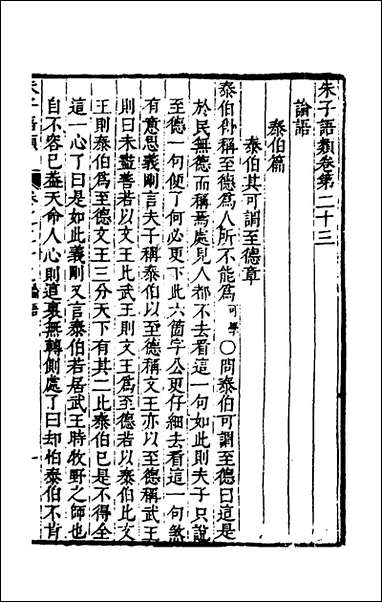 朱子語類卷第二十三
論語
泰伯篇
泰伯其可謂至德章
泰伯所以稱至德爲人所不能爲可學〇問泰伯可謂至德曰這是
於民無德而稱焉處見人都不去看這一句如此則夫子只說
至德一句便了何必更下此六箇字公更仔細去看這一句煞
有意思義剛言夫子稱泰伯以至德稱文王亦以至德稱武王
則曰未盡善若以文王比武王則文王爲至德若以泰伯比文
王則泰伯爲至德文王三分天下有其二比泰伯已是不得全
這一心了曰是如此義剛又言泰伯若居武王時牧野之師也
自不容已蓋天命人心到這裏無轉側處了曰却怕泰伯不肯